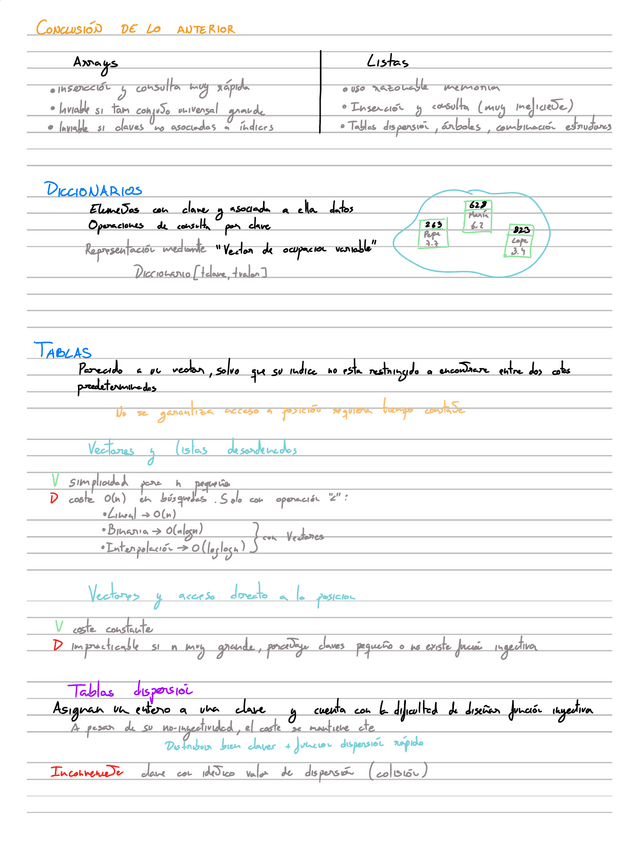 CONCLUSIÓN DE LO ANTERIOR
Arrays
Listas
• inserccción y consulta muy rápida
• uso razonable memoria
• Inviable si tam conjunto universal grande
• Inserción y consulta (muy ineficiente)
• Inviable si claves no asociadas a índices
• Tablas dispersión, árboles, combinación estructuras
DICCIONARIOS
Elementos con clave y asociada a ella datos
Operaciones de consulta por clave
Representación mediante "Vector de ocupacion variable"
DICCIONARIO [tclave, tvalor]
628
María
6.2
263
Pepe
7.7
823
Lope
3.4
TABLAS
Parecido a un vector, salvo que su indice no esta restringido a encontrarse entre dos cotas
predeterminadas
No se garantiza acceso a posición requiera tiempo constante
Vectores y listas desordenados
V simplicidad para n pequeño
D coste O(n) en búsquedas. Solo con operación "≤":
• Lineal → O(n)
• Binaria → O(nlogn)
• Interpolación → O(loglogn)
con Vectores
Vectores y acceso directo a la posicion
V coste constante
D impracticable si n muy grande, porcentaje claves pequeño o no existe función inyectiva
Tablas dispersión
Asignan un entero a una clave y cuenta con la dificultad de diseñar función inyectiva
A pesar de su no-inyectividad, el coste se mantiene cte
Distribuir bien claves + funcion dispersión rápida
Inconveniente clave con identico valor de dispersión (colisión)